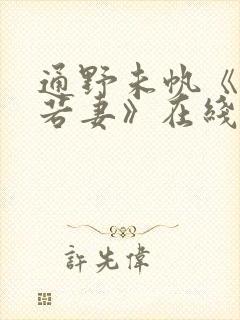 通野未帆《
若妻》在线
許先偉